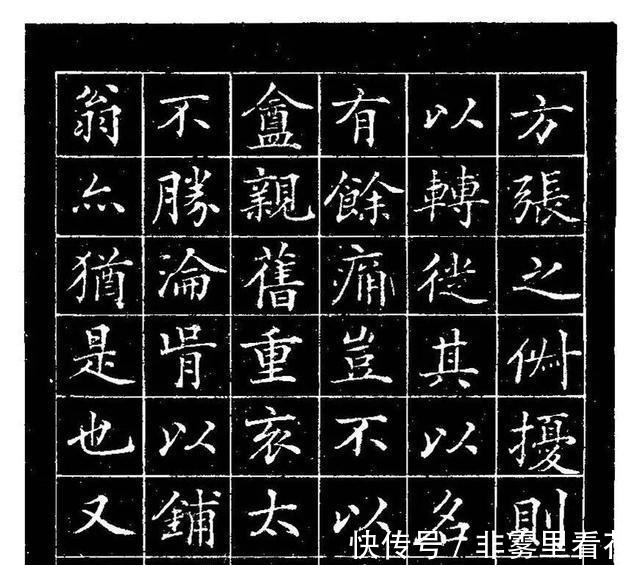 方張之俶擾則
以轉徙其以名
有餘痛豈不以
盦親舊重哀太
不勝淪胥以鋪
翁亦猶是也又
快传号 / 非雾里看花